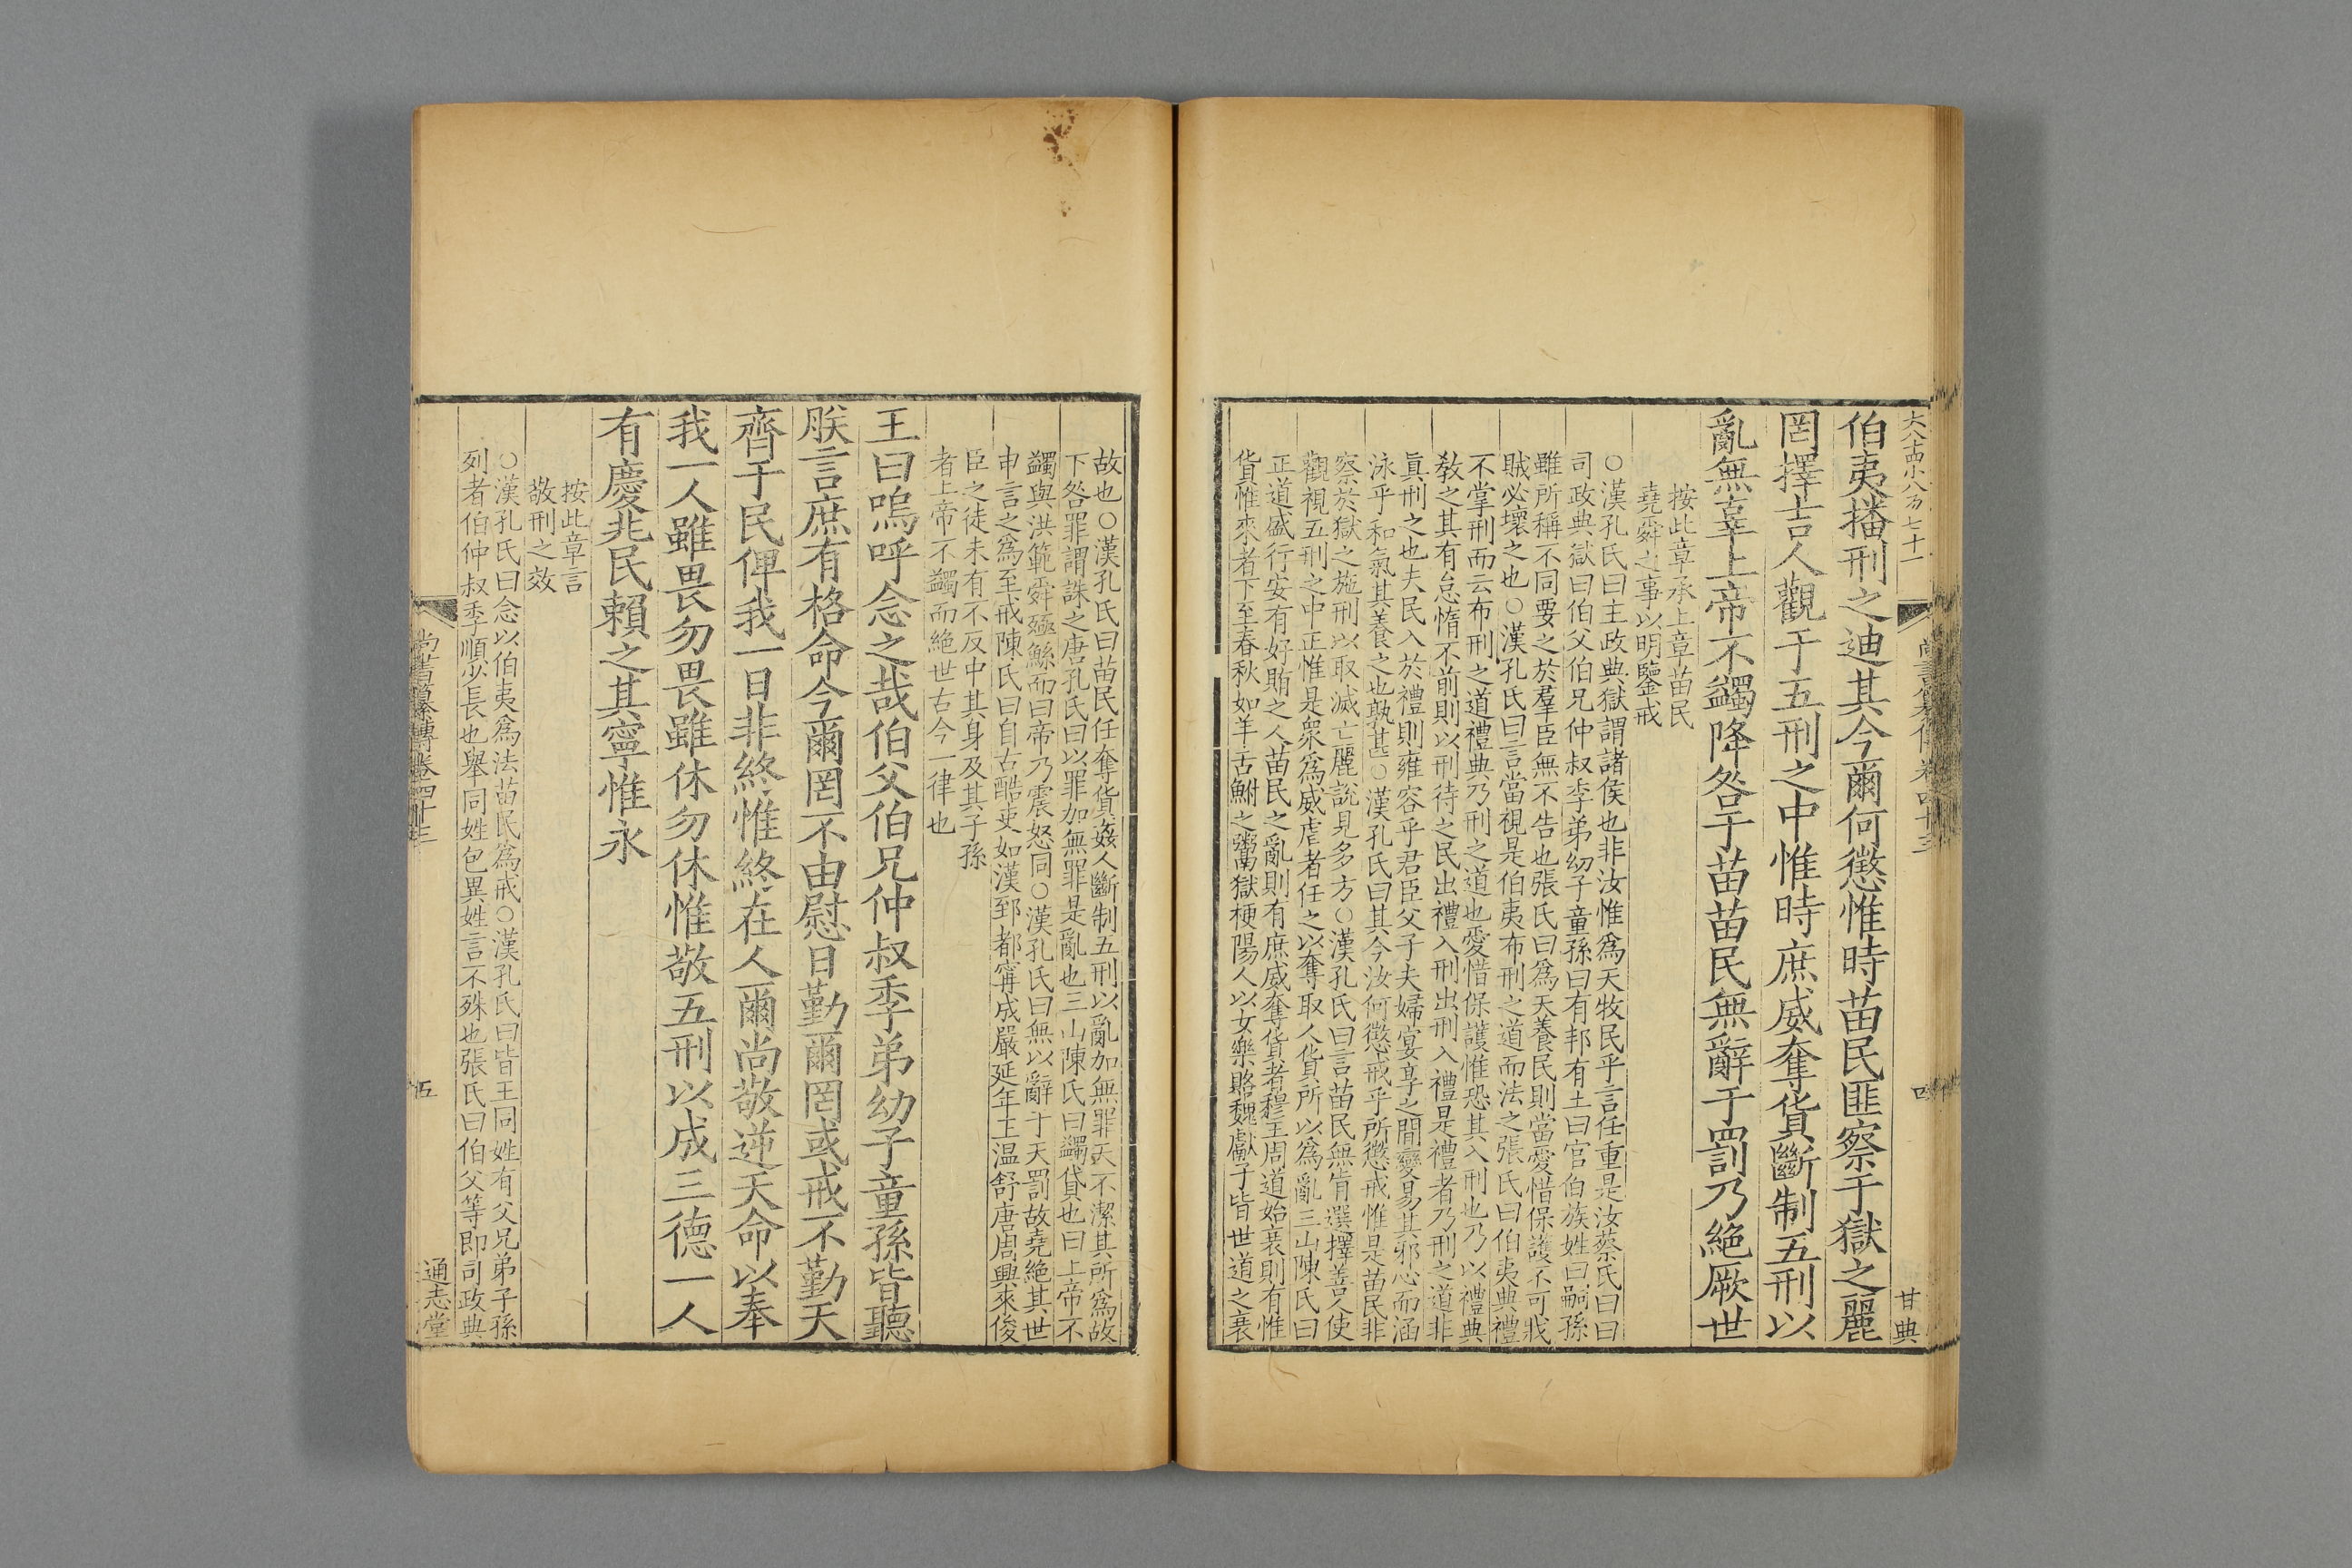 伯夷播刑之迪其今爾何懲惟時苗民匪察于獄之麗
罔擇吉人觀于五刑之中惟時庶威奪貨斷制五刑以
亂無辜上帝不蠲降咎于苗苗民無辭于罰乃絶厥世
按此章承上章苗民
堯舜之事以明鑒戒
○漢孔氏曰主政典獄謂諸侯也非汝惟爲天牧民乎言任重是汝蔡氏曰曰
司政典獄曰伯父伯兄仲叔季弟幼子童孫曰有邦有土曰官伯族姓曰嗣孫
雖所稱不同要之於羣臣無不告也張氏曰爲天養民則當愛惜保護不可戕
賊必壞之也○漢孔氏曰言當視是伯夷布刑之道而法之張氏曰伯夷典禮
不掌刑而云布刑之道禮典乃刑之道也愛惜保護惟恐其入刑也乃以禮典
敎之其有怠惰不前則以刑待之民出禮入刑出刑入禮是禮者乃刑之道非
眞刑之也夫民入於禮則雍容乎君臣父子夫婦宴享之間變易其邪心而涵
泳乎和氣其養之也孰甚○漢孔氏曰其今汝何懲戒乎所懲戒惟是苗民非
察於獄之施刑以取滅亡麗說見多方○漢孔氏曰言苗民無肯選擇善人使
觀視五刑之中正惟是衆爲威虐者任之以奪取人貨所以爲亂三山陳氏曰
正道盛行安有好賄之人苗民之亂則有庶威奪貨者穆王周道始衰則有惟
貨惟來者下至春秋如羊舌鮒之鬻獄梗陽人以女樂賂魏獻子皆世道之衰
甘典
故也○漢孔氏曰苗民任奪貨姦人斷制五刑以亂加無罪天不潔其所爲故
下咎罪謂誅之唐孔氏曰以罪加無罪是亂也三山陳氏曰蠲貸也曰上帝不
蠲與洪範舜殛鯀而曰帝乃震怒同○漢孔氏曰無以辭于天罰故堯絶其世
申言之爲至戒陳氏曰自古酷吏如漢郅都甯成嚴延年王温舒唐周興來俊
臣之徒未有不反中其身及其子孫
者上帝不蠲而絶世古今一律也
王曰嗚呼念之哉伯父伯兄仲叔季弟幼子童孫皆聽
朕言庶有格命今爾罔不由慰日勤爾罔或戒不勤天
齊于民俾我一日非終惟終在人爾尚敬逆天命以奉
我一人雖畏勿畏雖休勿休惟敬五刑以成三德一人
有慶兆民賴之其寧惟永
按此章言
敬刑之效
○漢孔氏曰念以伯夷爲法苗民爲戒○漢孔氏曰皆王同姓有父兄弟子孫
列者伯仲叔季順少長也舉同姓包異姓言不殊也張氏曰伯父等即司政典
尚書纂傳卷四十三
五
通志堂